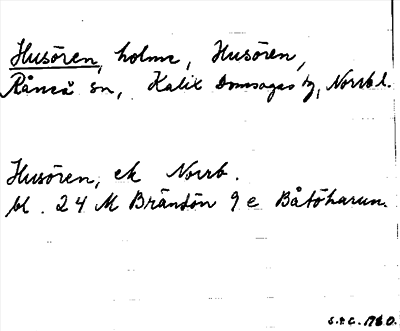 Husören, holme, Husören,
Råneå sn, Kalix Domsagas tg, Norrb l.
Husören, ek Norrb.
bl. 24 M Brändön 9 e Båtöharun.
S.E.C. 1960.